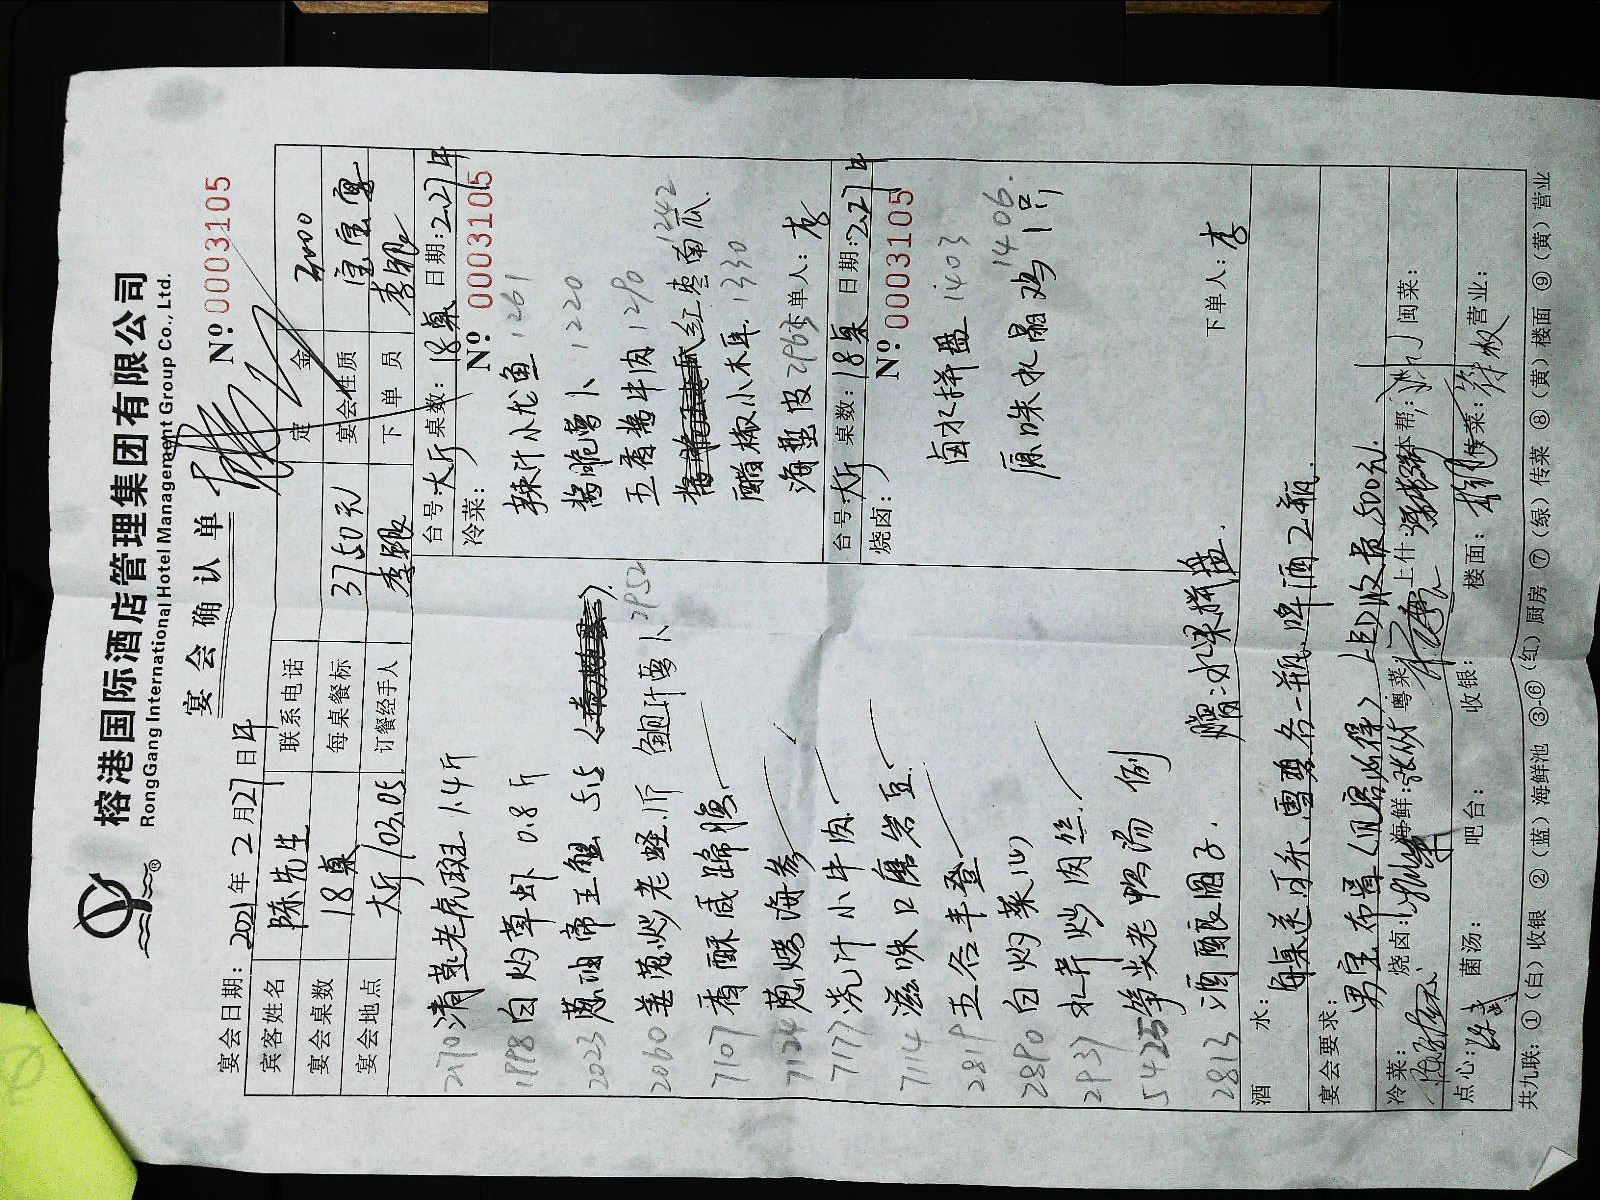 榕港国际酒店管理集团有限公司
RongGang International Hotel Management Group Co., Ltd.
®
宴会确认单
№ 0003105
宴会日期: 2021年2月27日午
宾客姓名 陈先生 联系电话 定金 3000
宴会桌数 18桌 每桌餐标 3750元 宴会性质 宝宝宴
宴会地点 大厅/03.05. 订餐经手人 李 下单员 李
2170 清蒸老虎斑 1.4斤
1998 白灼草虾 0.8斤
2023 葱油帝王蟹 515
2060 姜葱炒老蛏.1斤 鲍汁萝卜 2952
7107 香酥咸蹄膀.
7124 葱烤海参
7177 沈汁小牛肉.
7114 滋味口磨岩豆.
2819 五谷丰登
2890 白灼菜心
2937 札芽炒肉丝.
5425 笋尖老鸭汤 例
2813 酒酿圆子. 赠:水果拼盘.
台号: 大厅 桌数: 18桌 日期: 2.27午
冷菜: № 0003105
辣汁小尤鱼 1261
酱脆萝卜 1220
五香酱牛肉 1290
红枣南瓜. 1242
醋椒小木耳. 1330
海蜇皮 2965 下单人: 李
台号: 大厅 桌数: 18桌 日期: 2.27午
烧卤: № 0003105
卤水拼盘 1403
原味水晶鸡 1406.
下单人: 李
酒水: 每桌送可乐.雪碧各一瓶.啤酒2瓶.
宴会要求: 男宝布置(见客必得) 上台收费500元.
冷菜: 烧卤: 海鲜: 粤菜: 上什: 本帮: 闽菜:
点心: 菌汤: 吧台: 收银: 楼面: 传菜: 营业:
共九联: ①(白)收银 ②(蓝)海鲜池 ③-⑥(红)厨房 ⑦(绿)传菜 ⑧(黄)楼面 ⑨(黄)营业